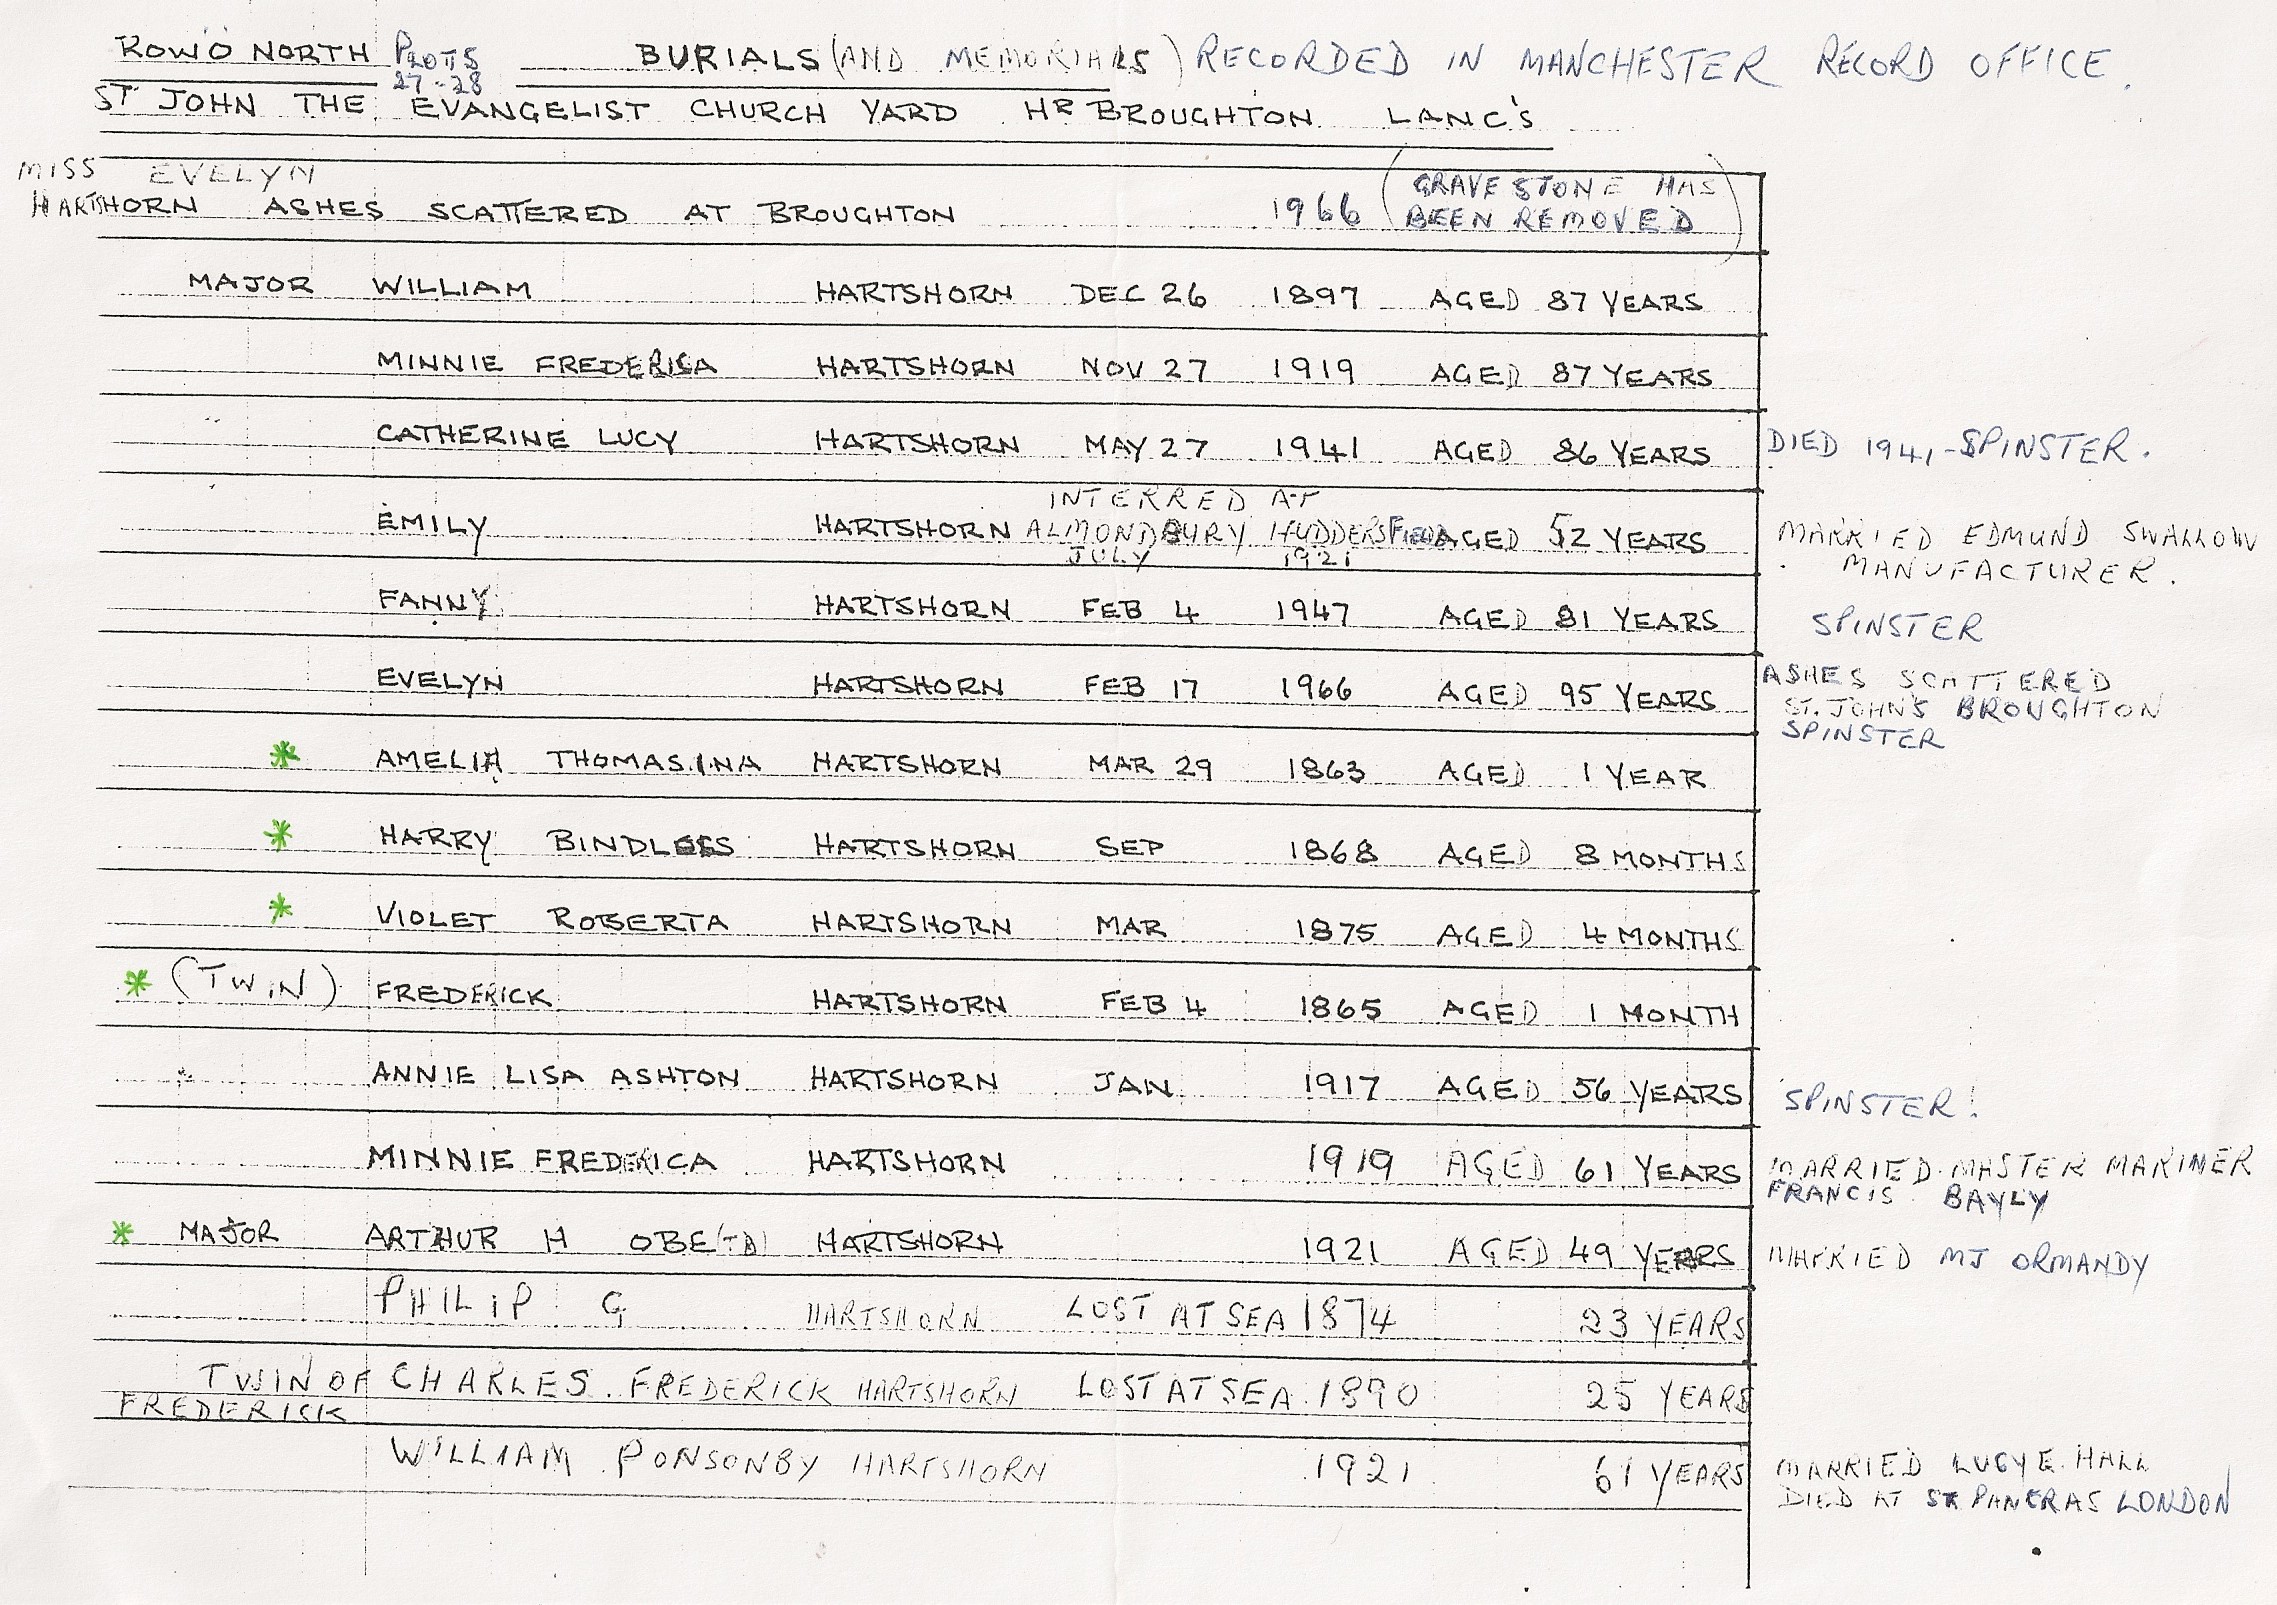 ROW O NORTH PLOTS 27-28 BURIALS (AND MEMORIALS) RECORDED IN MANCHESTER RECORD OFFICE.
ST JOHN THE EVANGELIST CHURCH YARD HR BROUGHTON LANC'S
MISS EVELYN
HARTSHORN ASHES SCATTERED AT BROUGHTON 1966 (GRAVE STONE HAS
BEEN REMOVED)
MAJOR WILLIAM HARTSHORN DEC 26 1897 AGED 87 YEARS
MINNIE FREDERICA HARTSHORN NOV 27 1919 AGED 87 YEARS
CATHERINE LUCY HARTSHORN MAY 27 1941 AGED 86 YEARS DIED 1941 - SPINSTER.
EMILY HARTSHORN INTERRED AT
ALMONDBURY HUDDERSFIELD
JULY 1921 AGED 52 YEARS MARRIED EDMUND SWALLOW
MANUFACTURER.
FANNY HARTSHORN FEB 4 1947 AGED 81 YEARS SPINSTER
EVELYN HARTSHORN FEB 17 1966 AGED 95 YEARS ASHES SCATTERED
ST. JOHN'S BROUGHTON
SPINSTER
* AMELIA THOMASINA HARTSHORN MAR 29 1863 AGED 1 YEAR
* HARRY BINDLOSS HARTSHORN SEP 1868 AGED 8 MONTHS
* VIOLET ROBERTA HARTSHORN MAR 1875 AGED 4 MONTHS
* (TWIN) FREDERICK HARTSHORN FEB 4 1865 AGED 1 MONTH
ANNIE LISA ASHTON HARTSHORN JAN 1917 AGED 56 YEARS SPINSTER!
MINNIE FREDERICA HARTSHORN 1919 AGED 61 YEARS MARRIED MASTER MARINER
FRANCIS BAYLY
* MAJOR ARTHUR H OBE (TD) HARTSHORN 1921 AGED 49 YEARS MARRIED MJ ORMANDY
PHILIP G HARTSHORN LOST AT SEA 1874 23 YEARS
TWIN OF CHARLES. FREDERICK HARTSHORN LOST AT SEA 1890 25 YEARS
FREDERICK
WILLIAM PONSONBY HARTSHORN 1921 61 YEARS MARRIED LUCY E. HALL
DIED AT ST PANCRAS LONDON